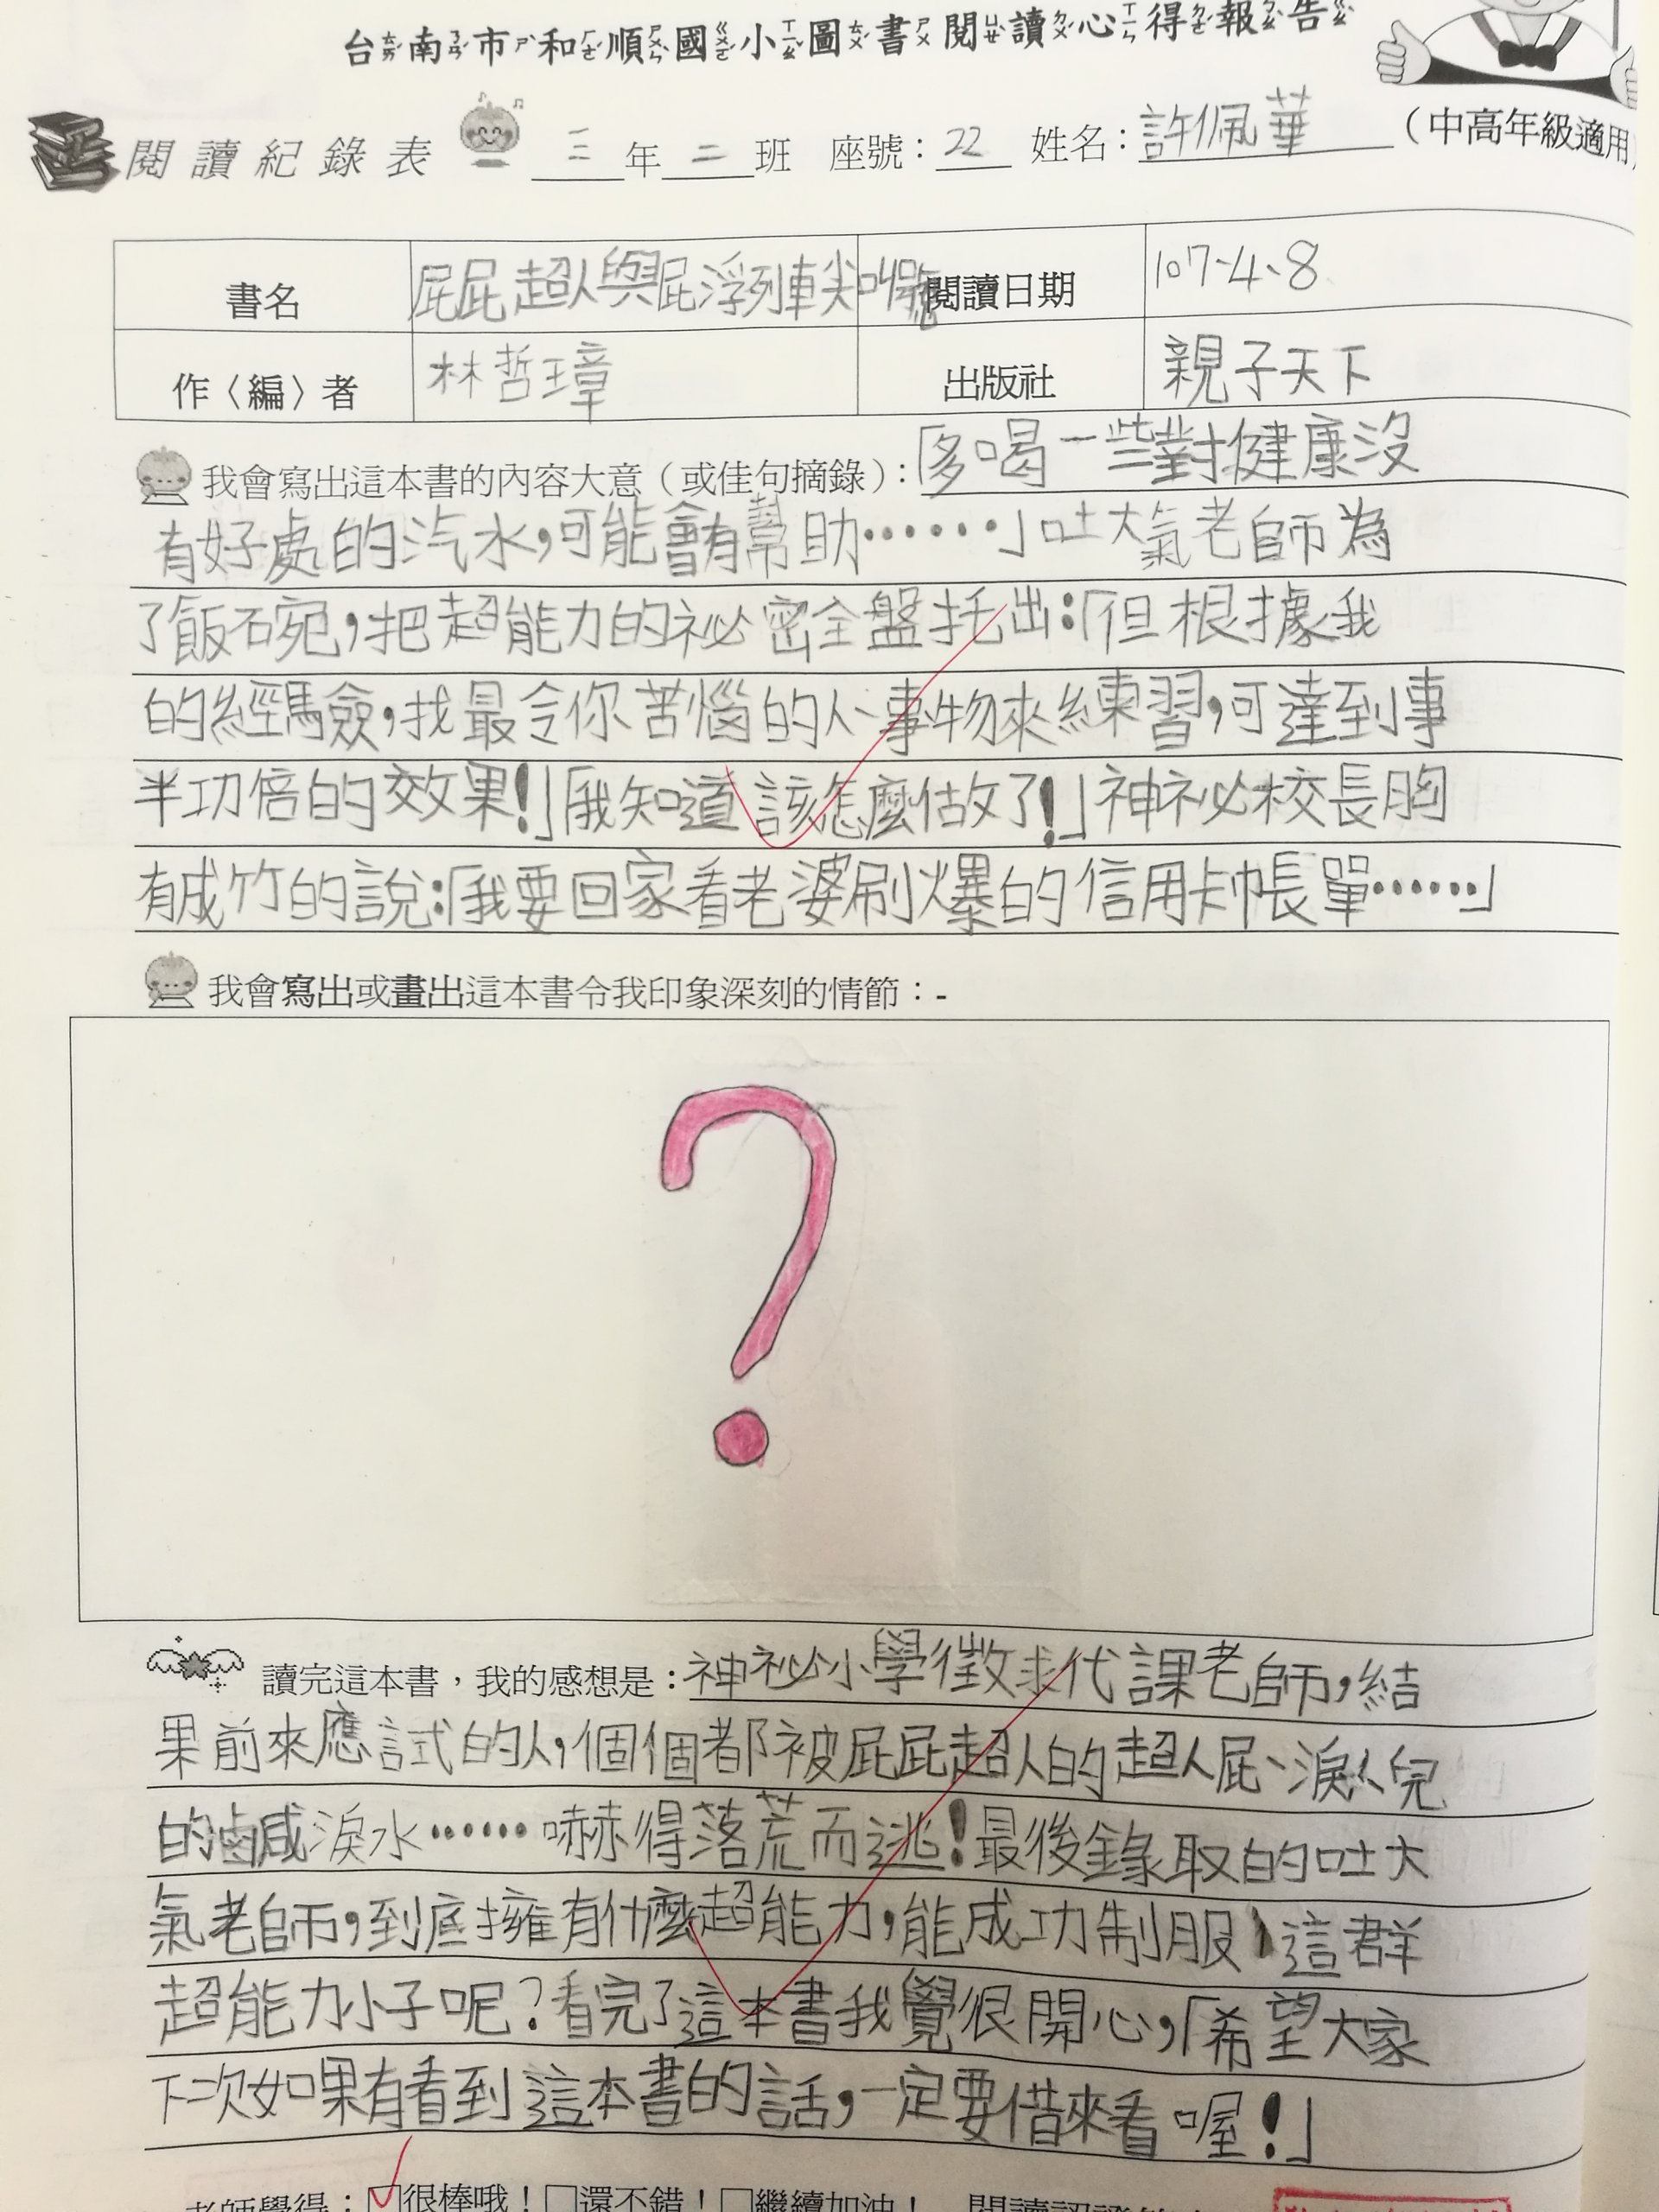 台南市和順國小圖書閱讀心得報告
閱讀紀錄表 三年二班 座號：22 姓名：許佩華 （中高年級適用）
書名 屁屁超人與屁浮列車尖叫號 閱讀日期 107、4、8
作〈編〉者 林哲璋 出版社 親子天下
我會寫出這本書的內容大意（或佳句摘錄）：「多喝一些對健康沒
有好處的汽水，可能會有幫助……」吐大氣老師為
了飯碗，把超能力的祕密全盤托出：「但根據我
的經驗，找最令你苦惱的人、事物來練習，可達到事
半功倍的效果！」「我知道該怎麼做了！」神祕校長胸
有成竹的說：「我要回家看老婆刷爆的信用卡帳單……」
我會寫出或畫出這本書令我印象深刻的情節：-
?
讀完這本書，我的感想是：神祕小學徵求代課老師，結
果前來應試的人，個個都被屁屁超人的超人屁、淚人兒
的鹵咸淚水……嚇得落荒而逃！最後錄取的吐大
氣老師，到底擁有什麼超能力，能成功制服這群
超能力小子呢？看完了這本書我覺很開心，「希望大家
下次如果有看到這本書的話，一定要借來看喔！」
老師覺得：☑很棒哦！□還不錯！□繼續加油！